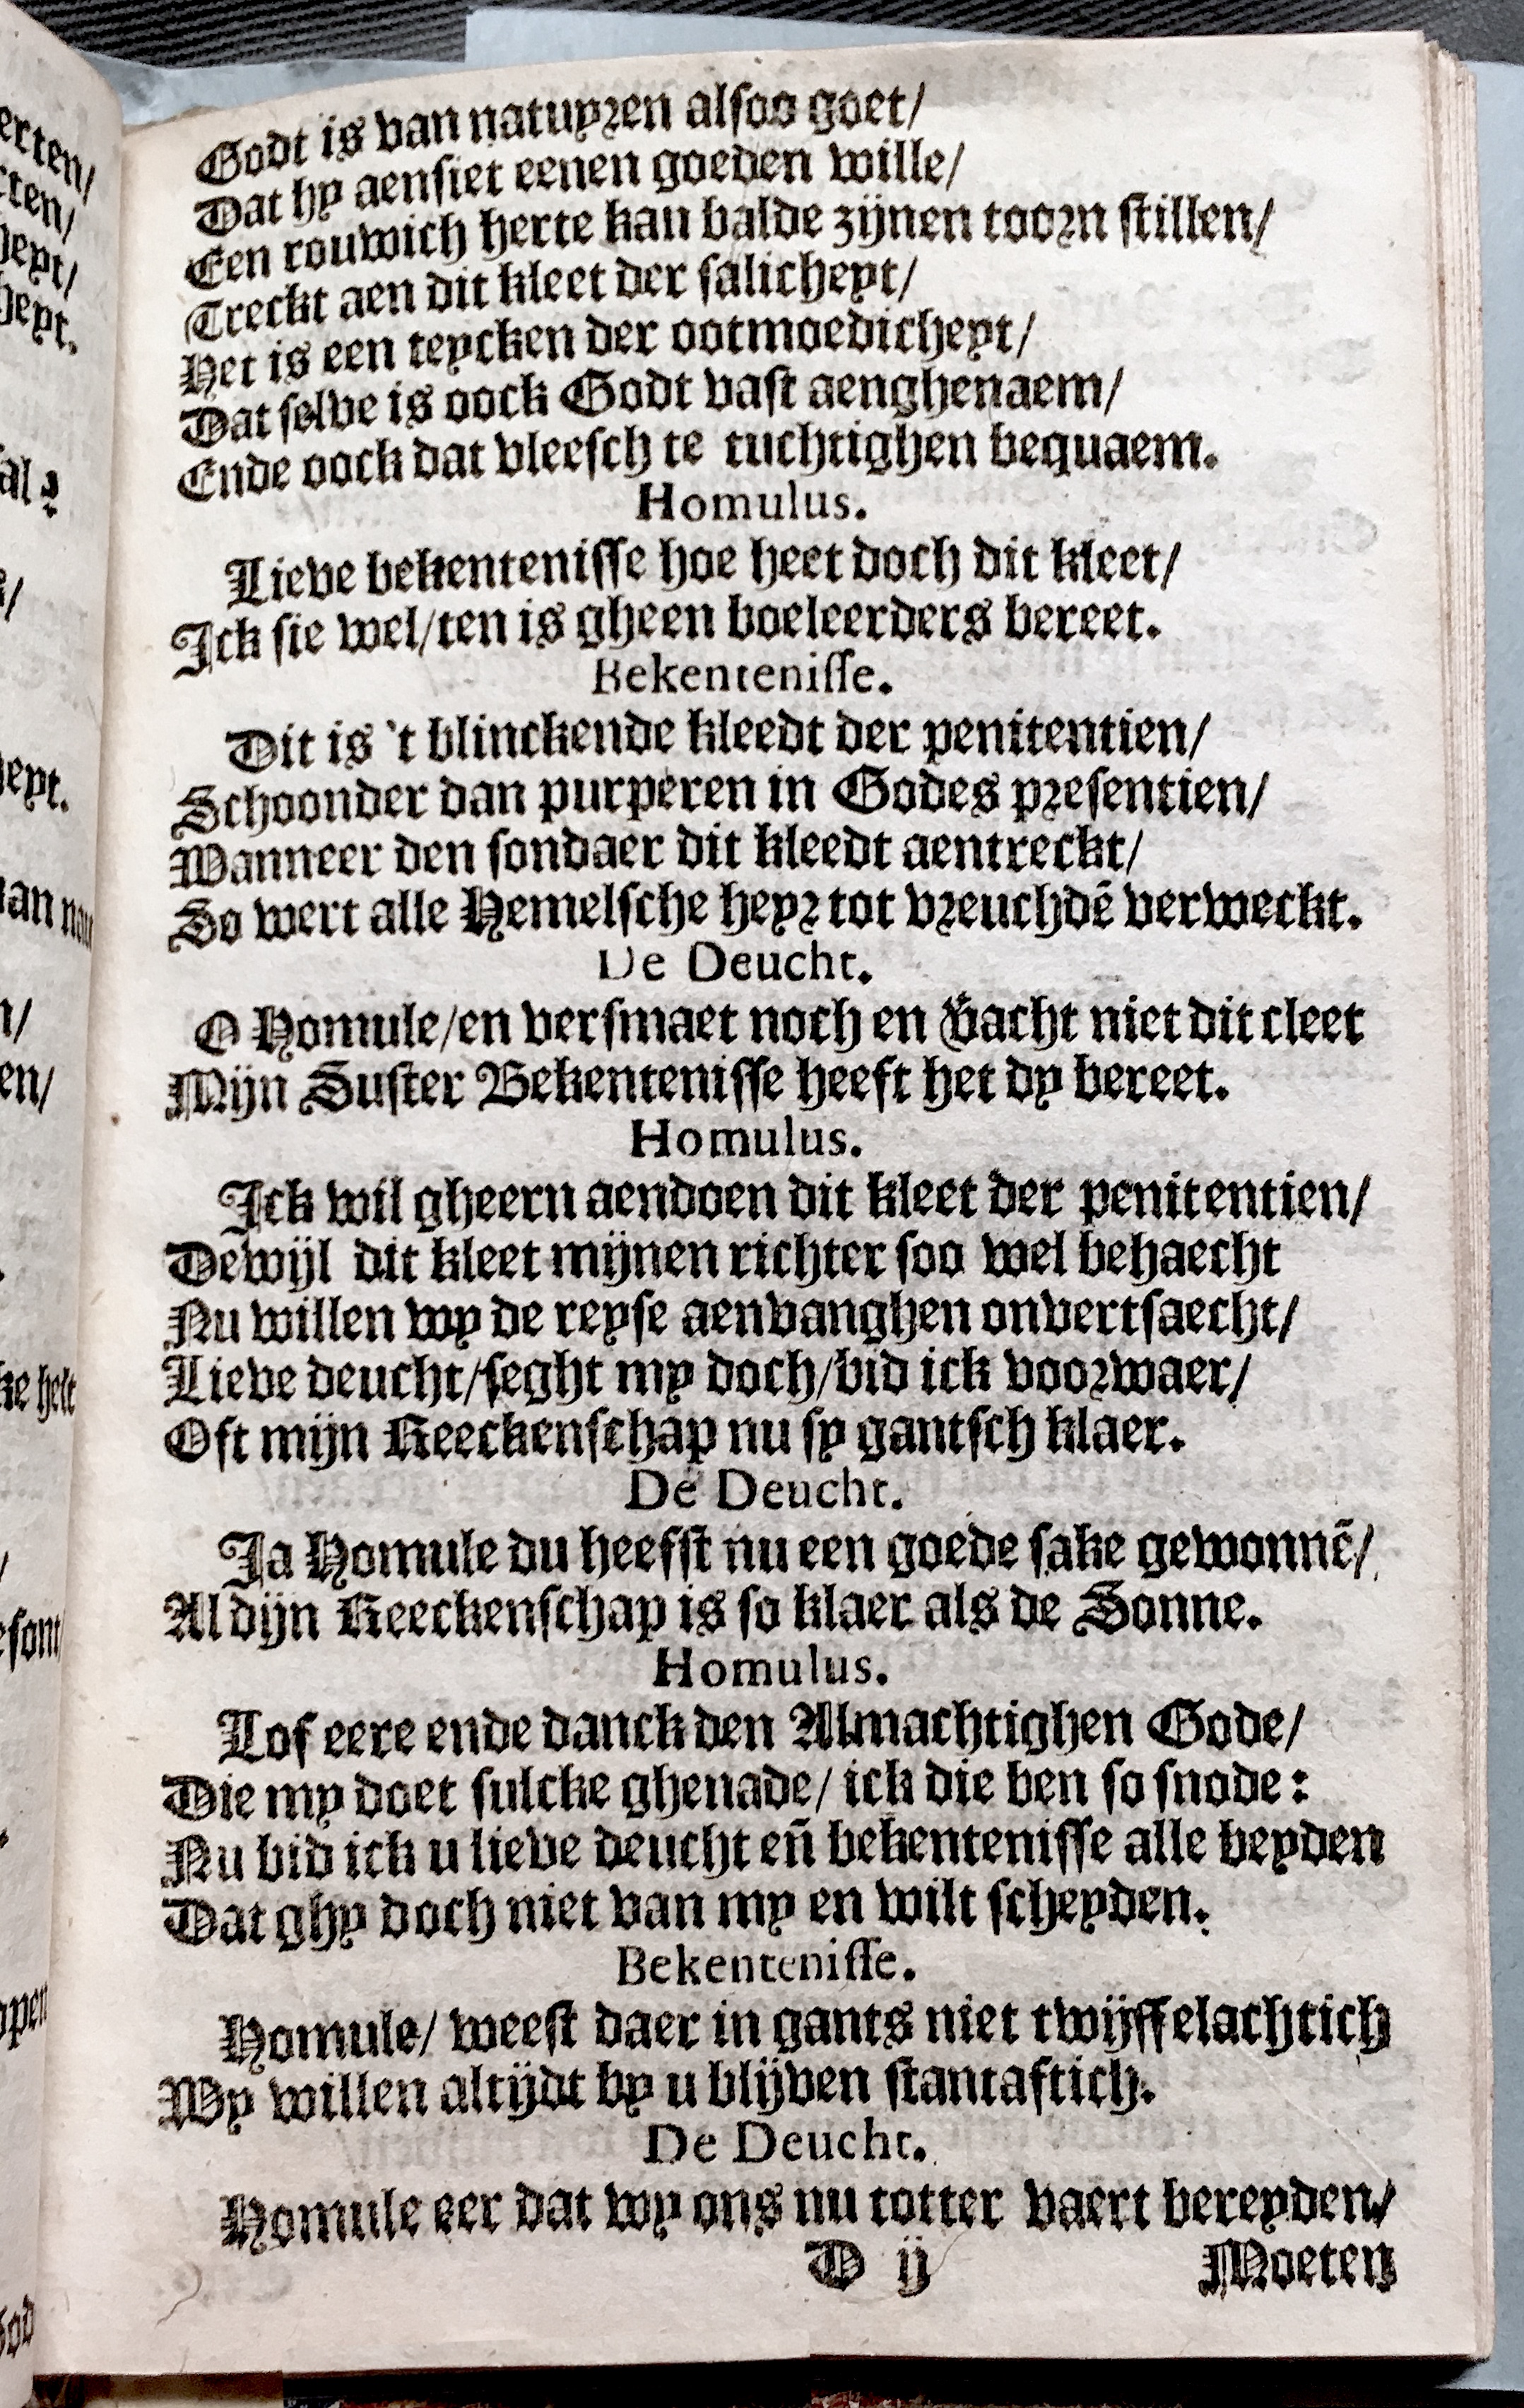 Godt is van natuyren alsoo goet/
Dat hy aensiet eenen goeden wille/
Een rouwich herte kan balde zijnen toorn stillen/
Treckt aen dit kleet der salicheyt/
Het is een teycken der ootmoedicheyt/
Dat selve is oock Godt vast aenghenaem/
Ende oock dat vleesch te tuchtighen bequaem.
Homulus.
Lieve bekentenisse hoe heet doch dit kleet/
Ick sie wel/ten is gheen boeleerders bereet.
Bekentenisse.
Dit is 't blinckende kleedt der penitentien/
Schoonder dan purperen in Godes presentien/
Wanneer den sondaer dit kleedt aentreckt/
So wert alle Hemelsche heyr tot vreuchdē verweckt.
De Deucht.
O Homule/en versmaet noch en v̄acht niet dit cleet
Mijn Suster Bekentenisse heeft het dy bereet.
Homulus.
Ick wil gheern aendoen dit kleet der penitentien/
Dewijl dit kleet mijnen richter soo wel behaecht
Nu willen wy de reyse aenvanghen onvertsaecht/
Lieve deucht/seght my doch/bid ick voorwaer/
Oft mijn Reeckenschap nu sy gantsch klaer.
De Deucht.
Ja Homule du heefst nu een goede sake gewonnē/
Al dijn Reeckenschap is so klaer als de Sonne.
Homulus.
Lof eere ende danck den Almachtighen Gode/
Die my doet sulcke ghenade/ ick die ben so snode:
Nu bid ick u lieve deucht en̄ bekentenisse alle beyden
Dat ghy doch niet van my en wilt scheyden.
Bekentenisse.
Homule/ weest daer in gants niet twijffelachtich
Wy willen altijdt by u blijven stantaftich.
De Deucht.
Homule eer dat wy ons nu totter vaert bereyden/
D ij
Moeten